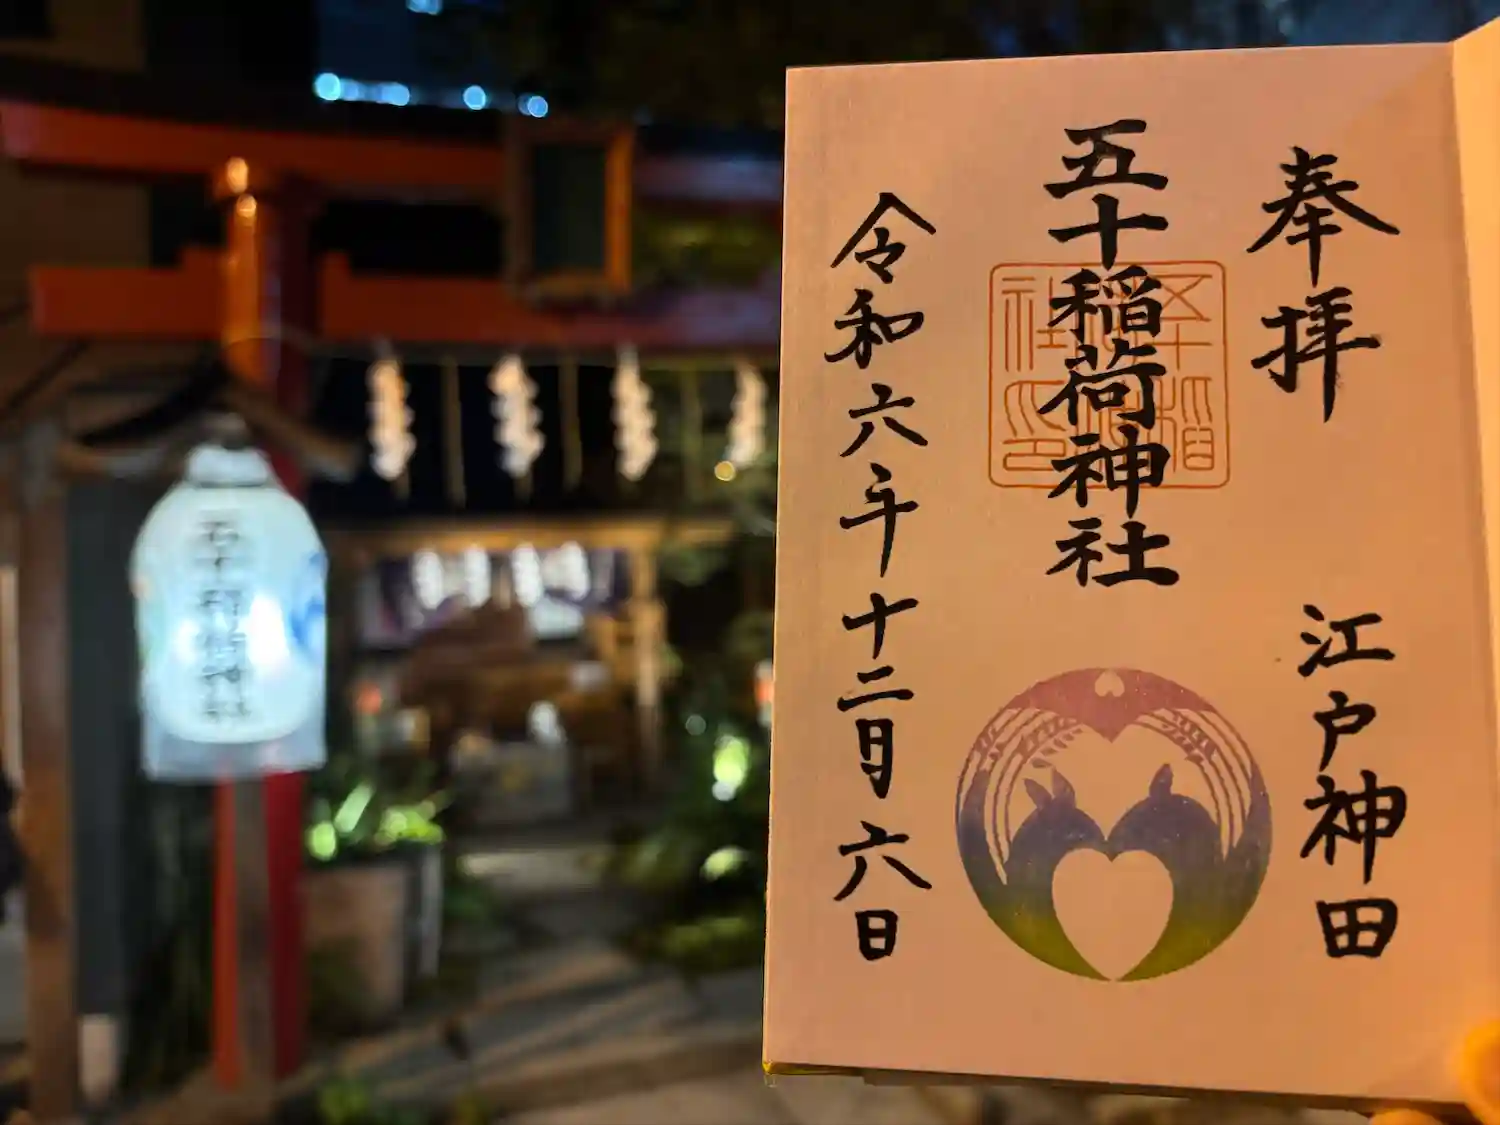 奉拝
江戸神田
五十稲荷神社
令和六年十二月六日
五十稲荷神社